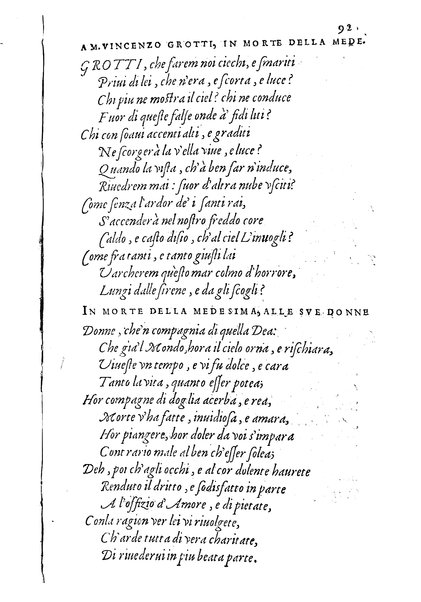 92.
A M. VINCENZO GROTTI, IN MORTE DELLA MEDE.
GROTTI, che farem noi ciechi, e smariti
Priui di lei, che n'era, e scorta, e luce?
Chi piu ne mostra il ciel? chi ne conduce
Fuor di queste false onde à fidi liti?
Chi con soaui accenti alti, e graditi
Ne scorgerà la v'ella viue, e luce?
Quando la vista, ch'à ben far n'induce,
Riuedrem mai: fuor d'altra nube vsciti?
Come senza l'ardor de' i santi rai,
S'accenderà nel nostro freddo core
Caldo, e casto disio, ch'al ciel L'inuogli?
Come fra tanti, e tanto giusti lai
Varcherem questo mar colmo d'horrore,
Lungi dalle sirene, e da gli scogli?
IN MORTE DELLA MEDESIMA, ALLE SVE DONNE
Donne, che'n compagnia di quella Dea:
Che gia'l Mondo, hora il cielo orna, e rischiara,
Viueste vn tempo, e vi fu dolce, e cara
Tanto la vita, quanto esser potea;
Hor compagne di doglia acerba, e rea,
Morte v'ha fatte, inuidiosa, e amara,
Hor piangere, hor doler da voi s'impara
Contrario male al ben ch'esser solea;
Deh, poi ch'agli occhi, e al cor dolente haurete
Renduto il dritto, e sodisfatto in parte
A l'offizio d'Amore, e di pietate,
Con la ragion ver lei vi riuolgete,
Ch'arde tutta di vera charitate,
Di riuederui in piu beata parte.